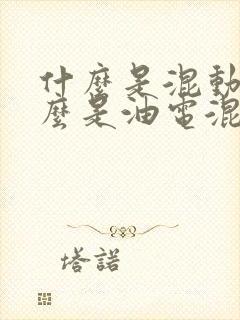 什麼是混動
麼是油電混
塔諾